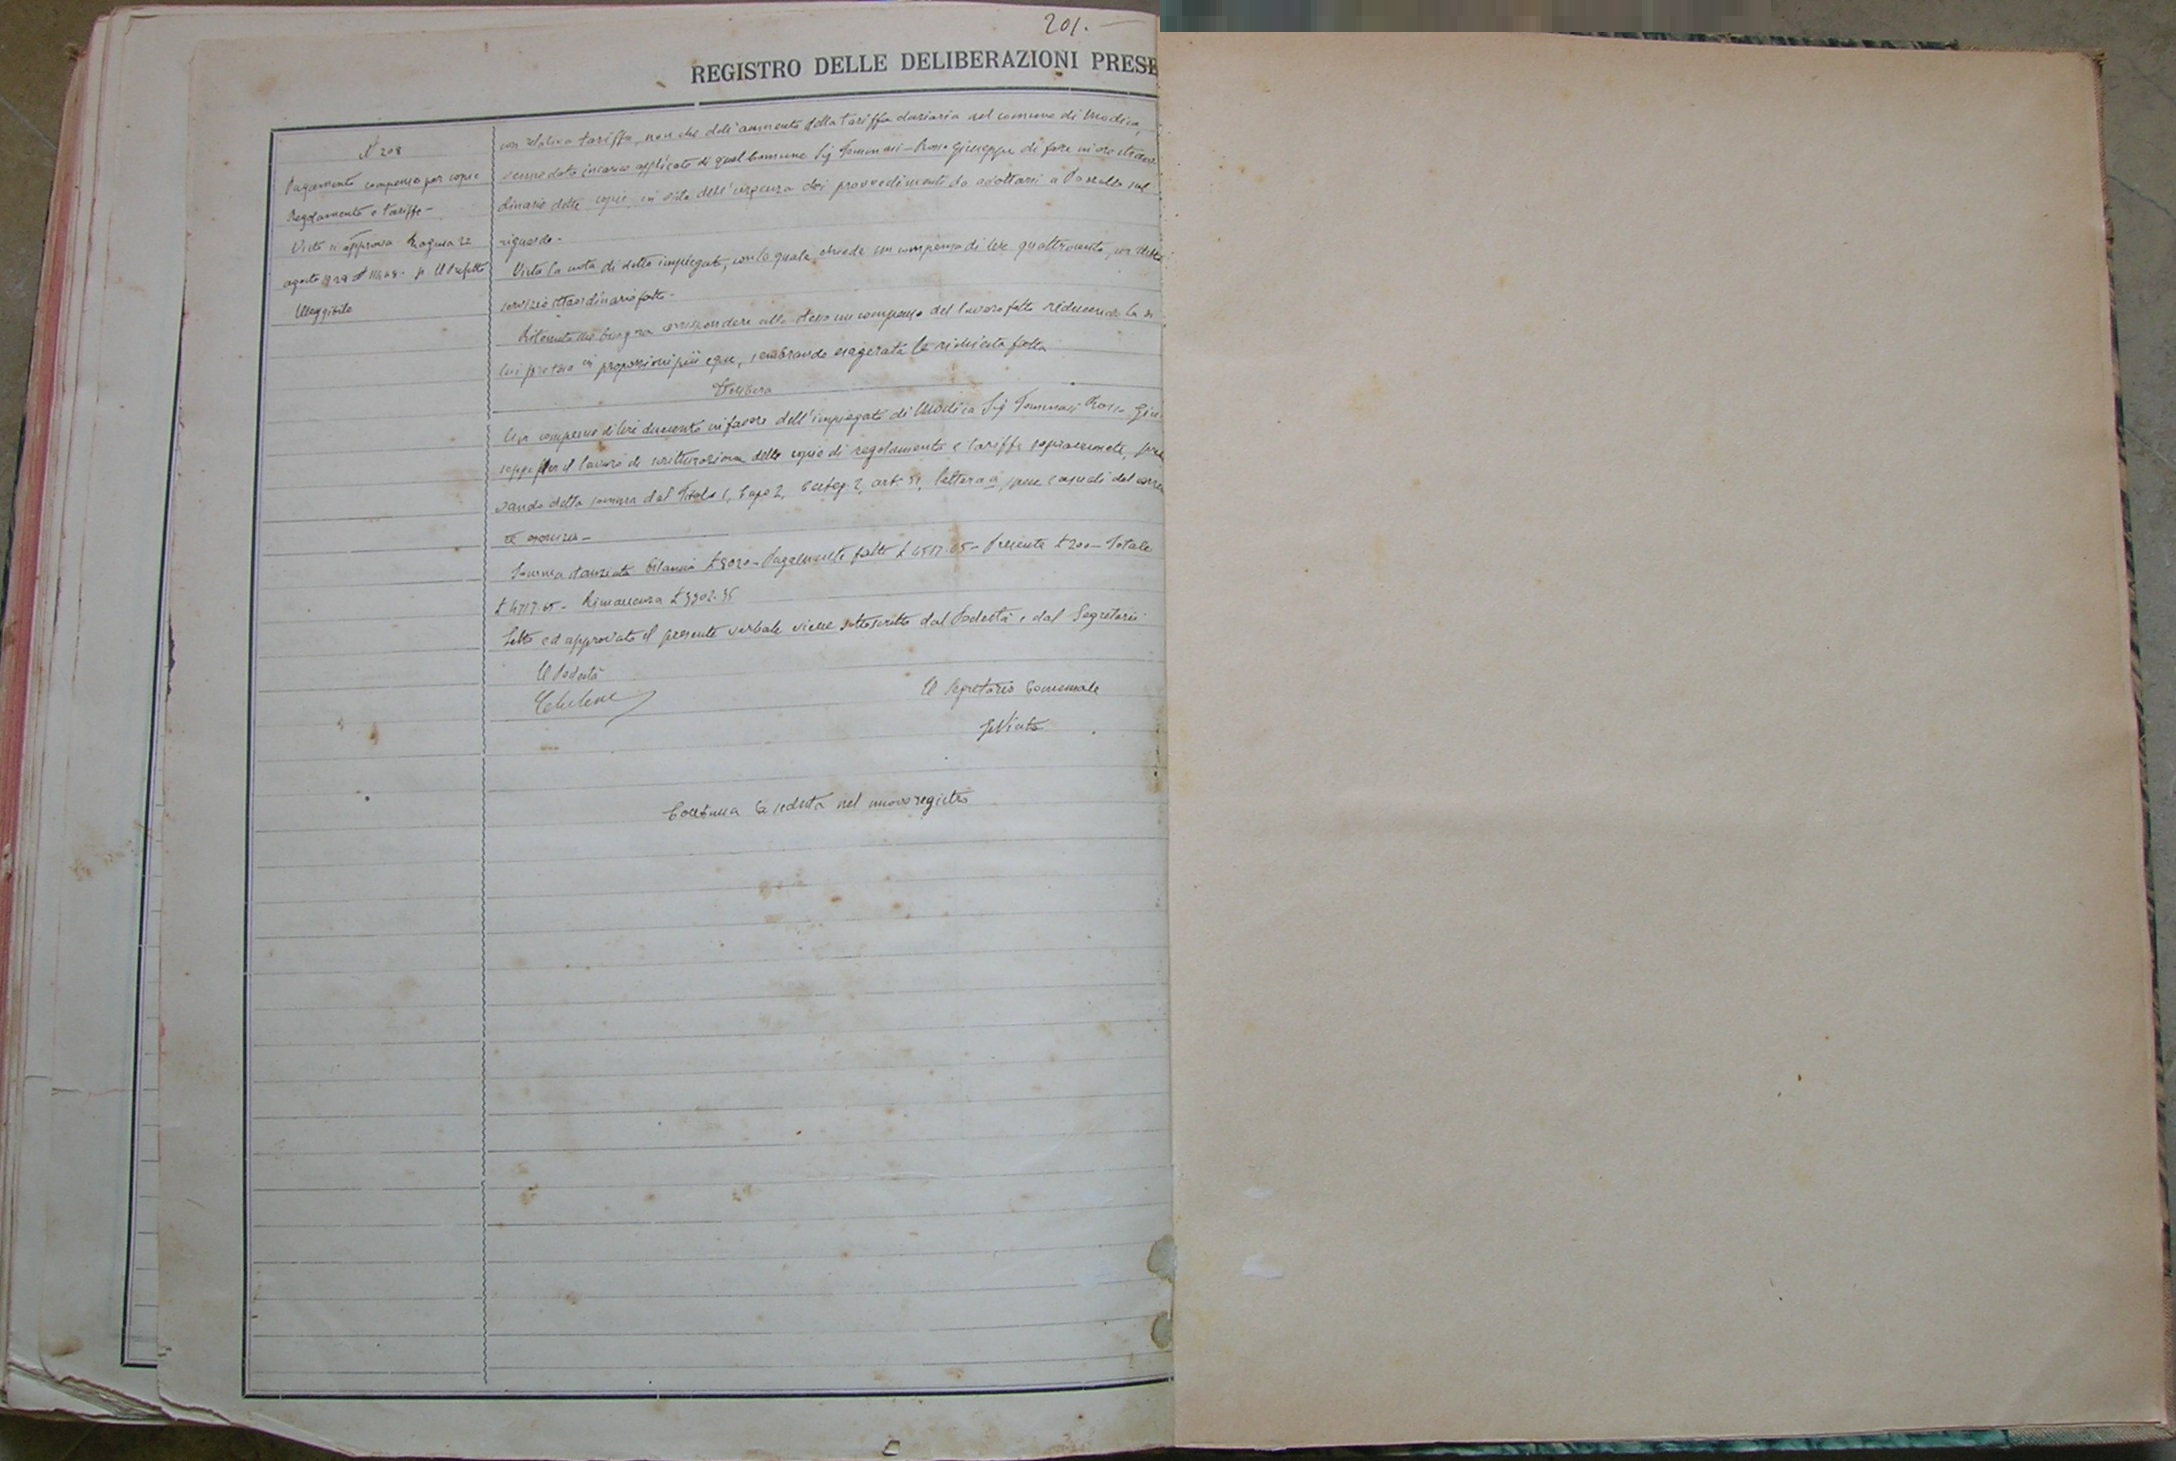 201.
REGISTRO DELLE DELIBERAZIONI PRESE
N° 208
Pagamento compenso per copie
Regolamento e tariffe -
Visto si approva Ragusa 22
agosto 1928 p. Il Prefetto
Illeggibile
con relativa tariffa, non che dell'aumento della tariffa daziaria nel comune di Modica,
venne dato incarico applicato di quel Comune Sig. Tommasi - Rosso Giuseppe di fare in ore straor
dinarie dette copie, in vista dell'urgenza dei provvedimenti da adottarsi a sul
riguardo -
Vista la nota di detto impiegato, con la quale chiede un compenso di lire quattrocento, per detto
servizio straordinario fatto -
Ritenuto che bisogna corrispondere allo stesso un compenso del lavoro fatto riducendo la di
lui pretesa in proporzioni più eque, sembrando esagerata la richiesta fatta
Delibera
Un compenso di lire duecento in favore dell'impiegato di Modica Sig. Tommasi Rosso Giu
seppe per il lavoro di scritturazione delle copie di regolamento e tariffe sopraccennate, prele
vando detta somma dal Titolo 1, Capo 2, Categ. 2, art. lettera a, spese casuali del corren
te esercizio -
Somma stanziata bilancio £ 8020 - Pagamenti fatti £ 4517.65 - Presente £ 200 - Totale
£ 4717.65 - Rimanenza £ 3302.35
Letto ed approvato il presente verbale viene sottoscritto dal Podestà e dal Segretario
Il Podestà
Il Segretario Comunale
Continua la seduta nel nuovo registro